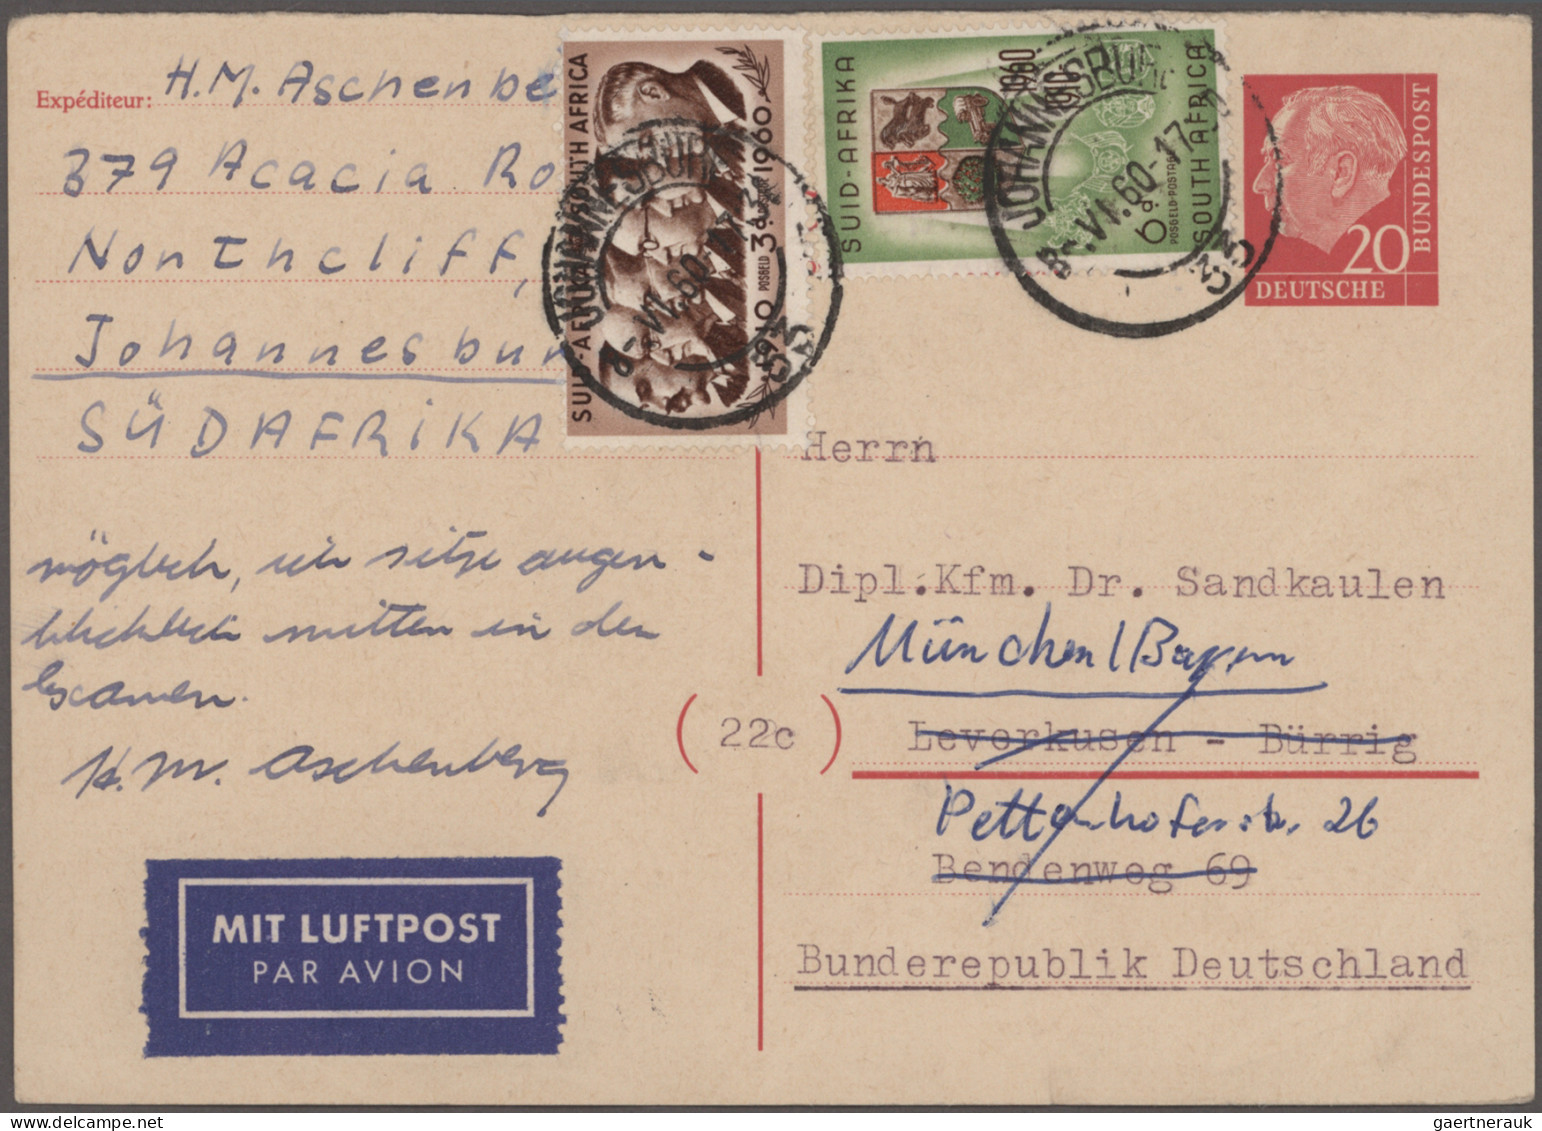 Expéditeur: H.M. Aschenbe
379 Acacia Ro
Northcliff,
Johannesbur
SÜDAFRIKA
möglich, ich sitze augen-
blicklich mitten in den
Examen.
H. M. Aschenberg
MIT LUFTPOST
PAR AVION
SUID-AFRIKA SOUTH AFRICA
1910 POSGELD 3d 1960
JOHANNESBURG
8-VI.60
33
SUID-AFRIKA
1910 1960
6d POSGELD-POSTAGE
SOUTH AFRICA
JOHANNESBURG
8-VI.60-17
33
DEUTSCHE
BUNDESPOST
20
Herrn
Dipl.Kfm. Dr. Sandkaulen
München/Bayern
(22c) Leverkusen - Bürrig
Pettenkoferstr. 26
Bendenweg 69
Bundesrepublik Deutschland
gaertnerauk | delcampe.net